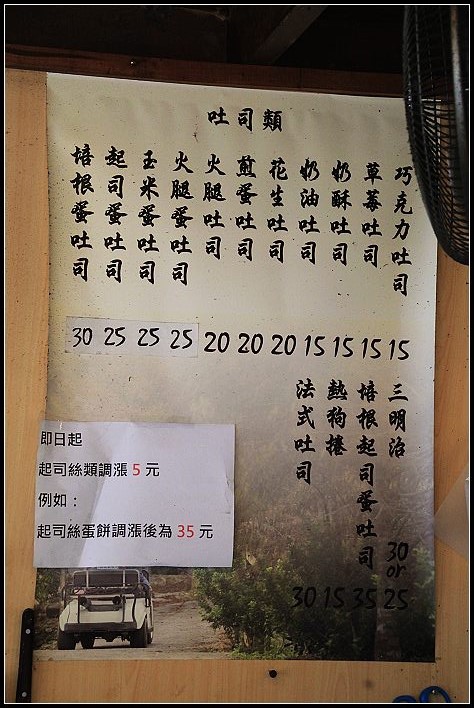 吐司類
巧克力吐司 15
草莓吐司 15
奶酥吐司 15
奶油吐司 15
花生吐司 20
煎蛋吐司 20
火腿吐司 20
火腿蛋吐司 25
玉米蛋吐司 25
起司蛋吐司 25
培根蛋吐司 30
三明治 30 or 25
培根起司蛋吐司 35
熱狗捲 15
法式吐司 30
即日起
起司絲類調漲 5 元
例如：
起司絲蛋餅調漲後為 35 元